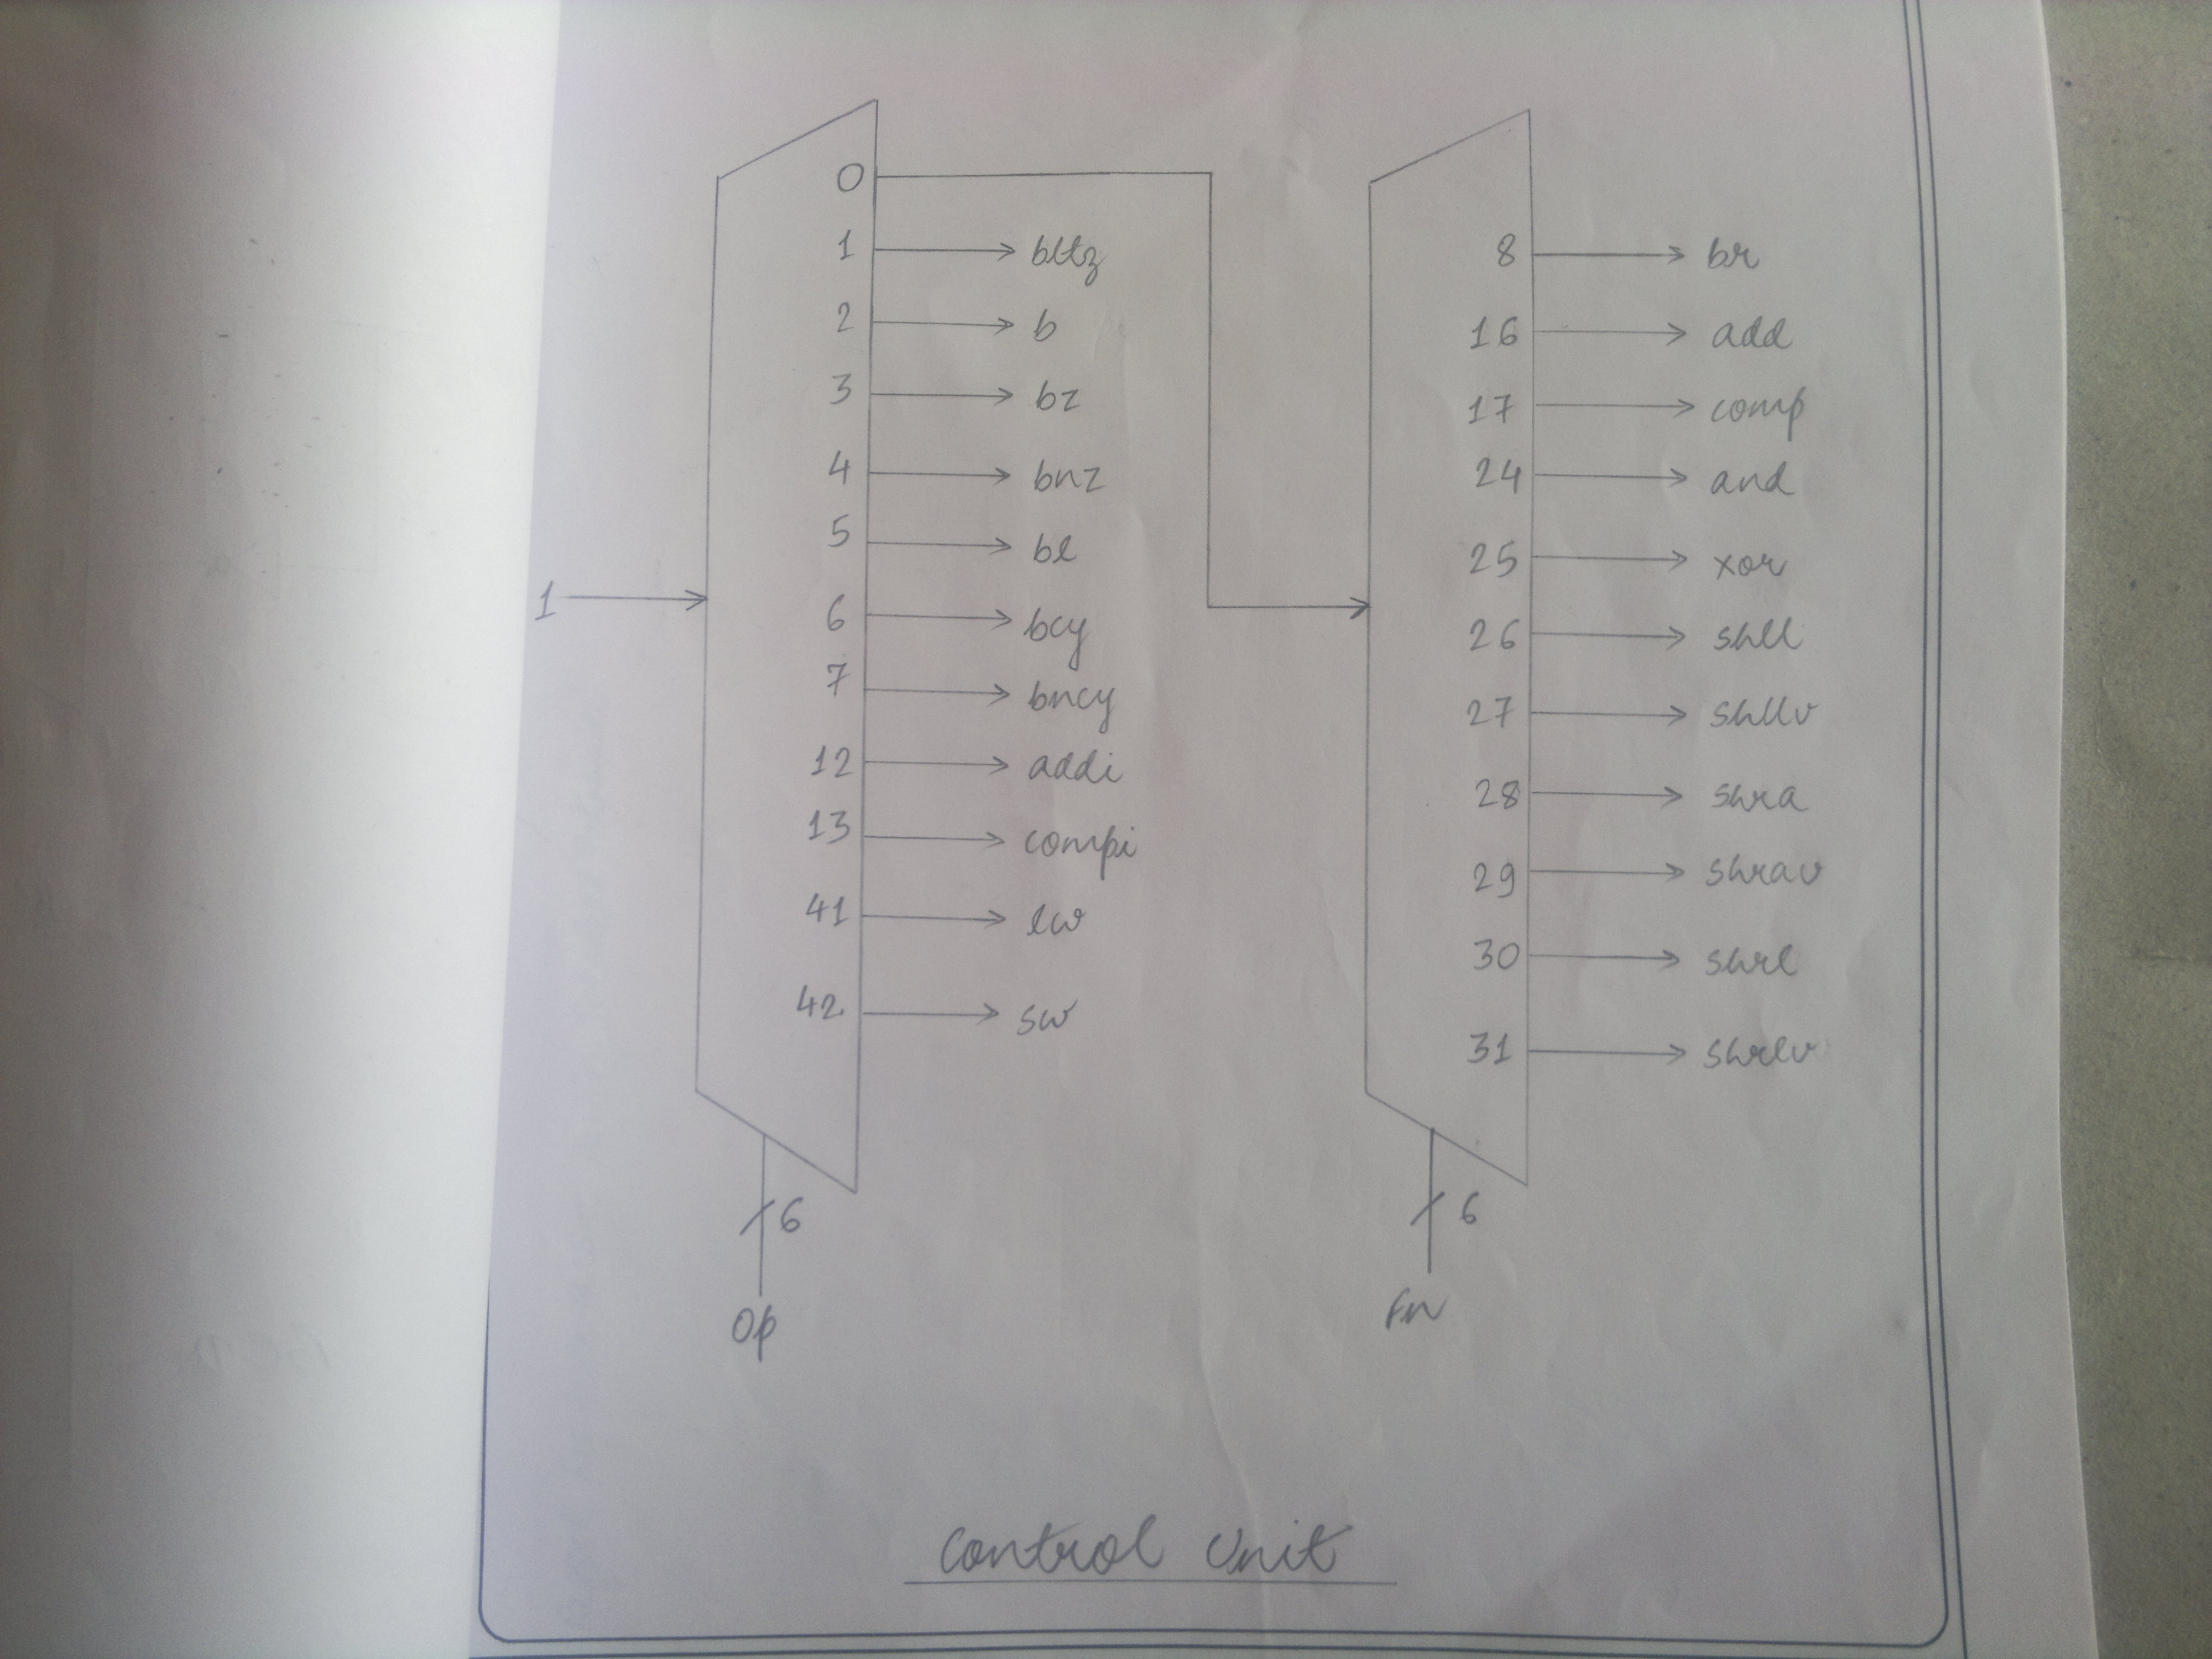 0
1 bltz
2 b
3 bz
4 bnz
5 bl
1
6 bcy
7 bncy
12 addi
13 compi
41 lw
42 sw
6
Op
8 br
16 add
17 comp
24 and
25 xor
26 shll
27 shllv
28 shra
29 shrav
30 shrl
31 shrlv
6
Fn
Control Unit